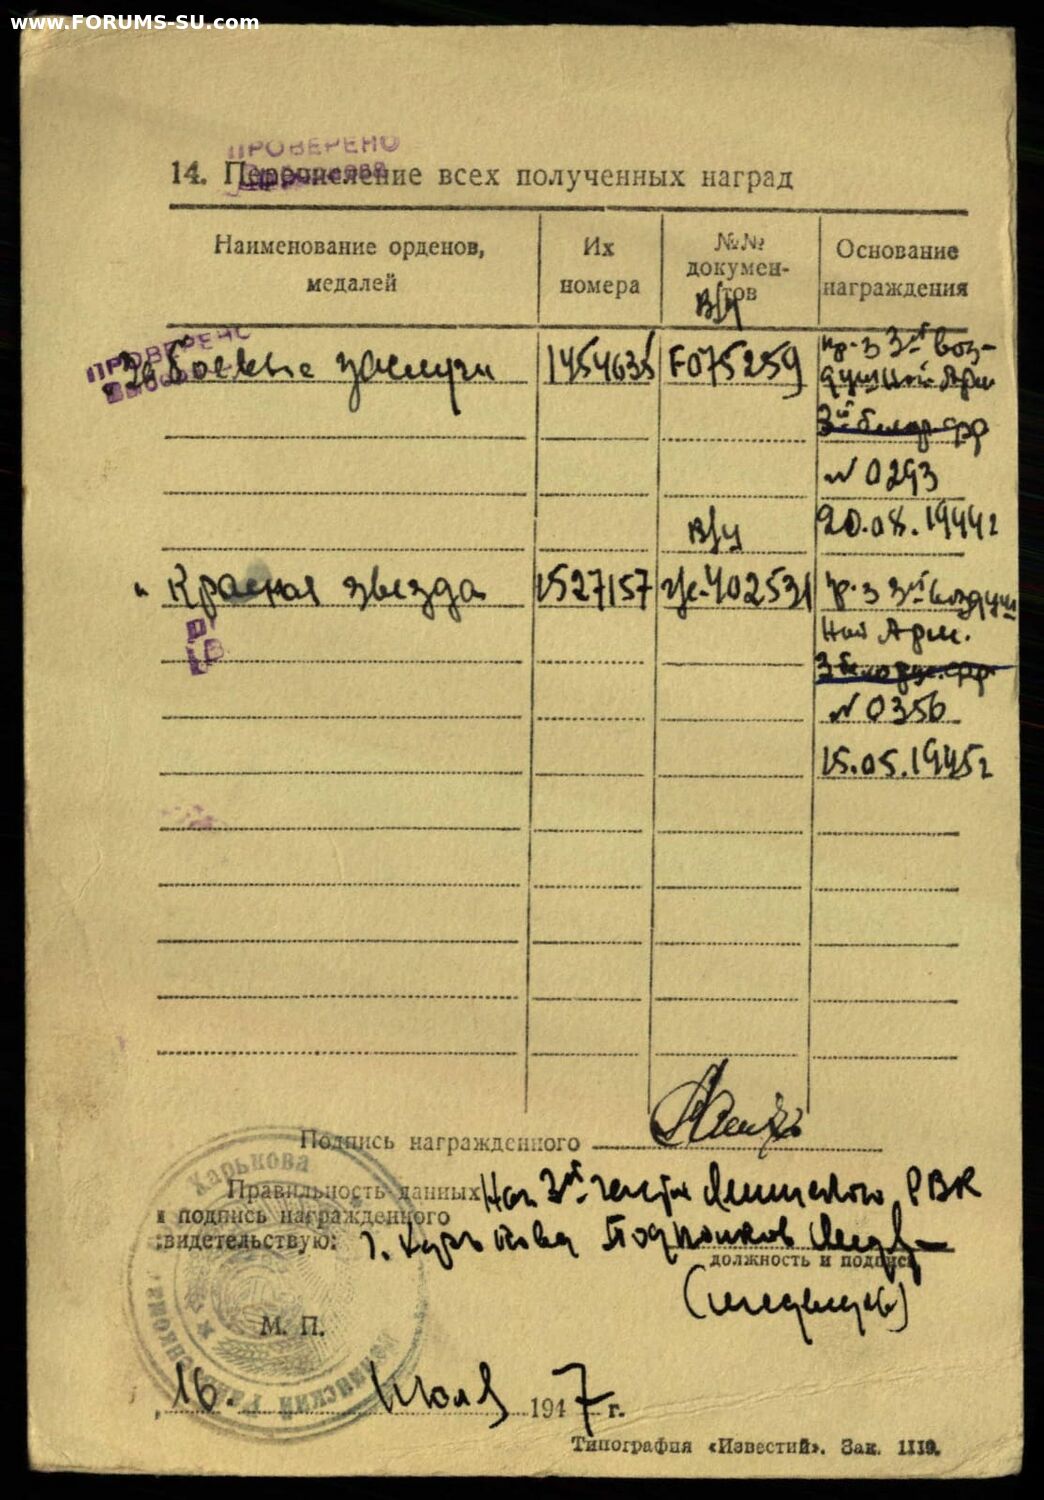 www.FORUMS-SU.com
ПРОВЕРЕНО
14. Перечисление всех полученных наград
Наименование орденов, медалей
Их номера
№№ документов
Основание награждения
в/ч
ПРОВЕРЕНО
"За боевые заслуги 1454635 F075259 пр-з 3й Воз-
душной Арм
3й белор фр
N 0293
в/ч 20.08.1944г
" Красная звезда 1527157 402531 пр-з 3й воздуш
ной Арм.
3 белорус. фр
N 0356
15.05.1945г
Подпись награжденного
Правильность данных Нач 3й части РВК
и подпись награжденного
свидетельствую: г. Харькова Подполков
должность и подпись
Харькова
М. П.
16. Июля 1947 г.
Типография «Известий». Зак. 1119.